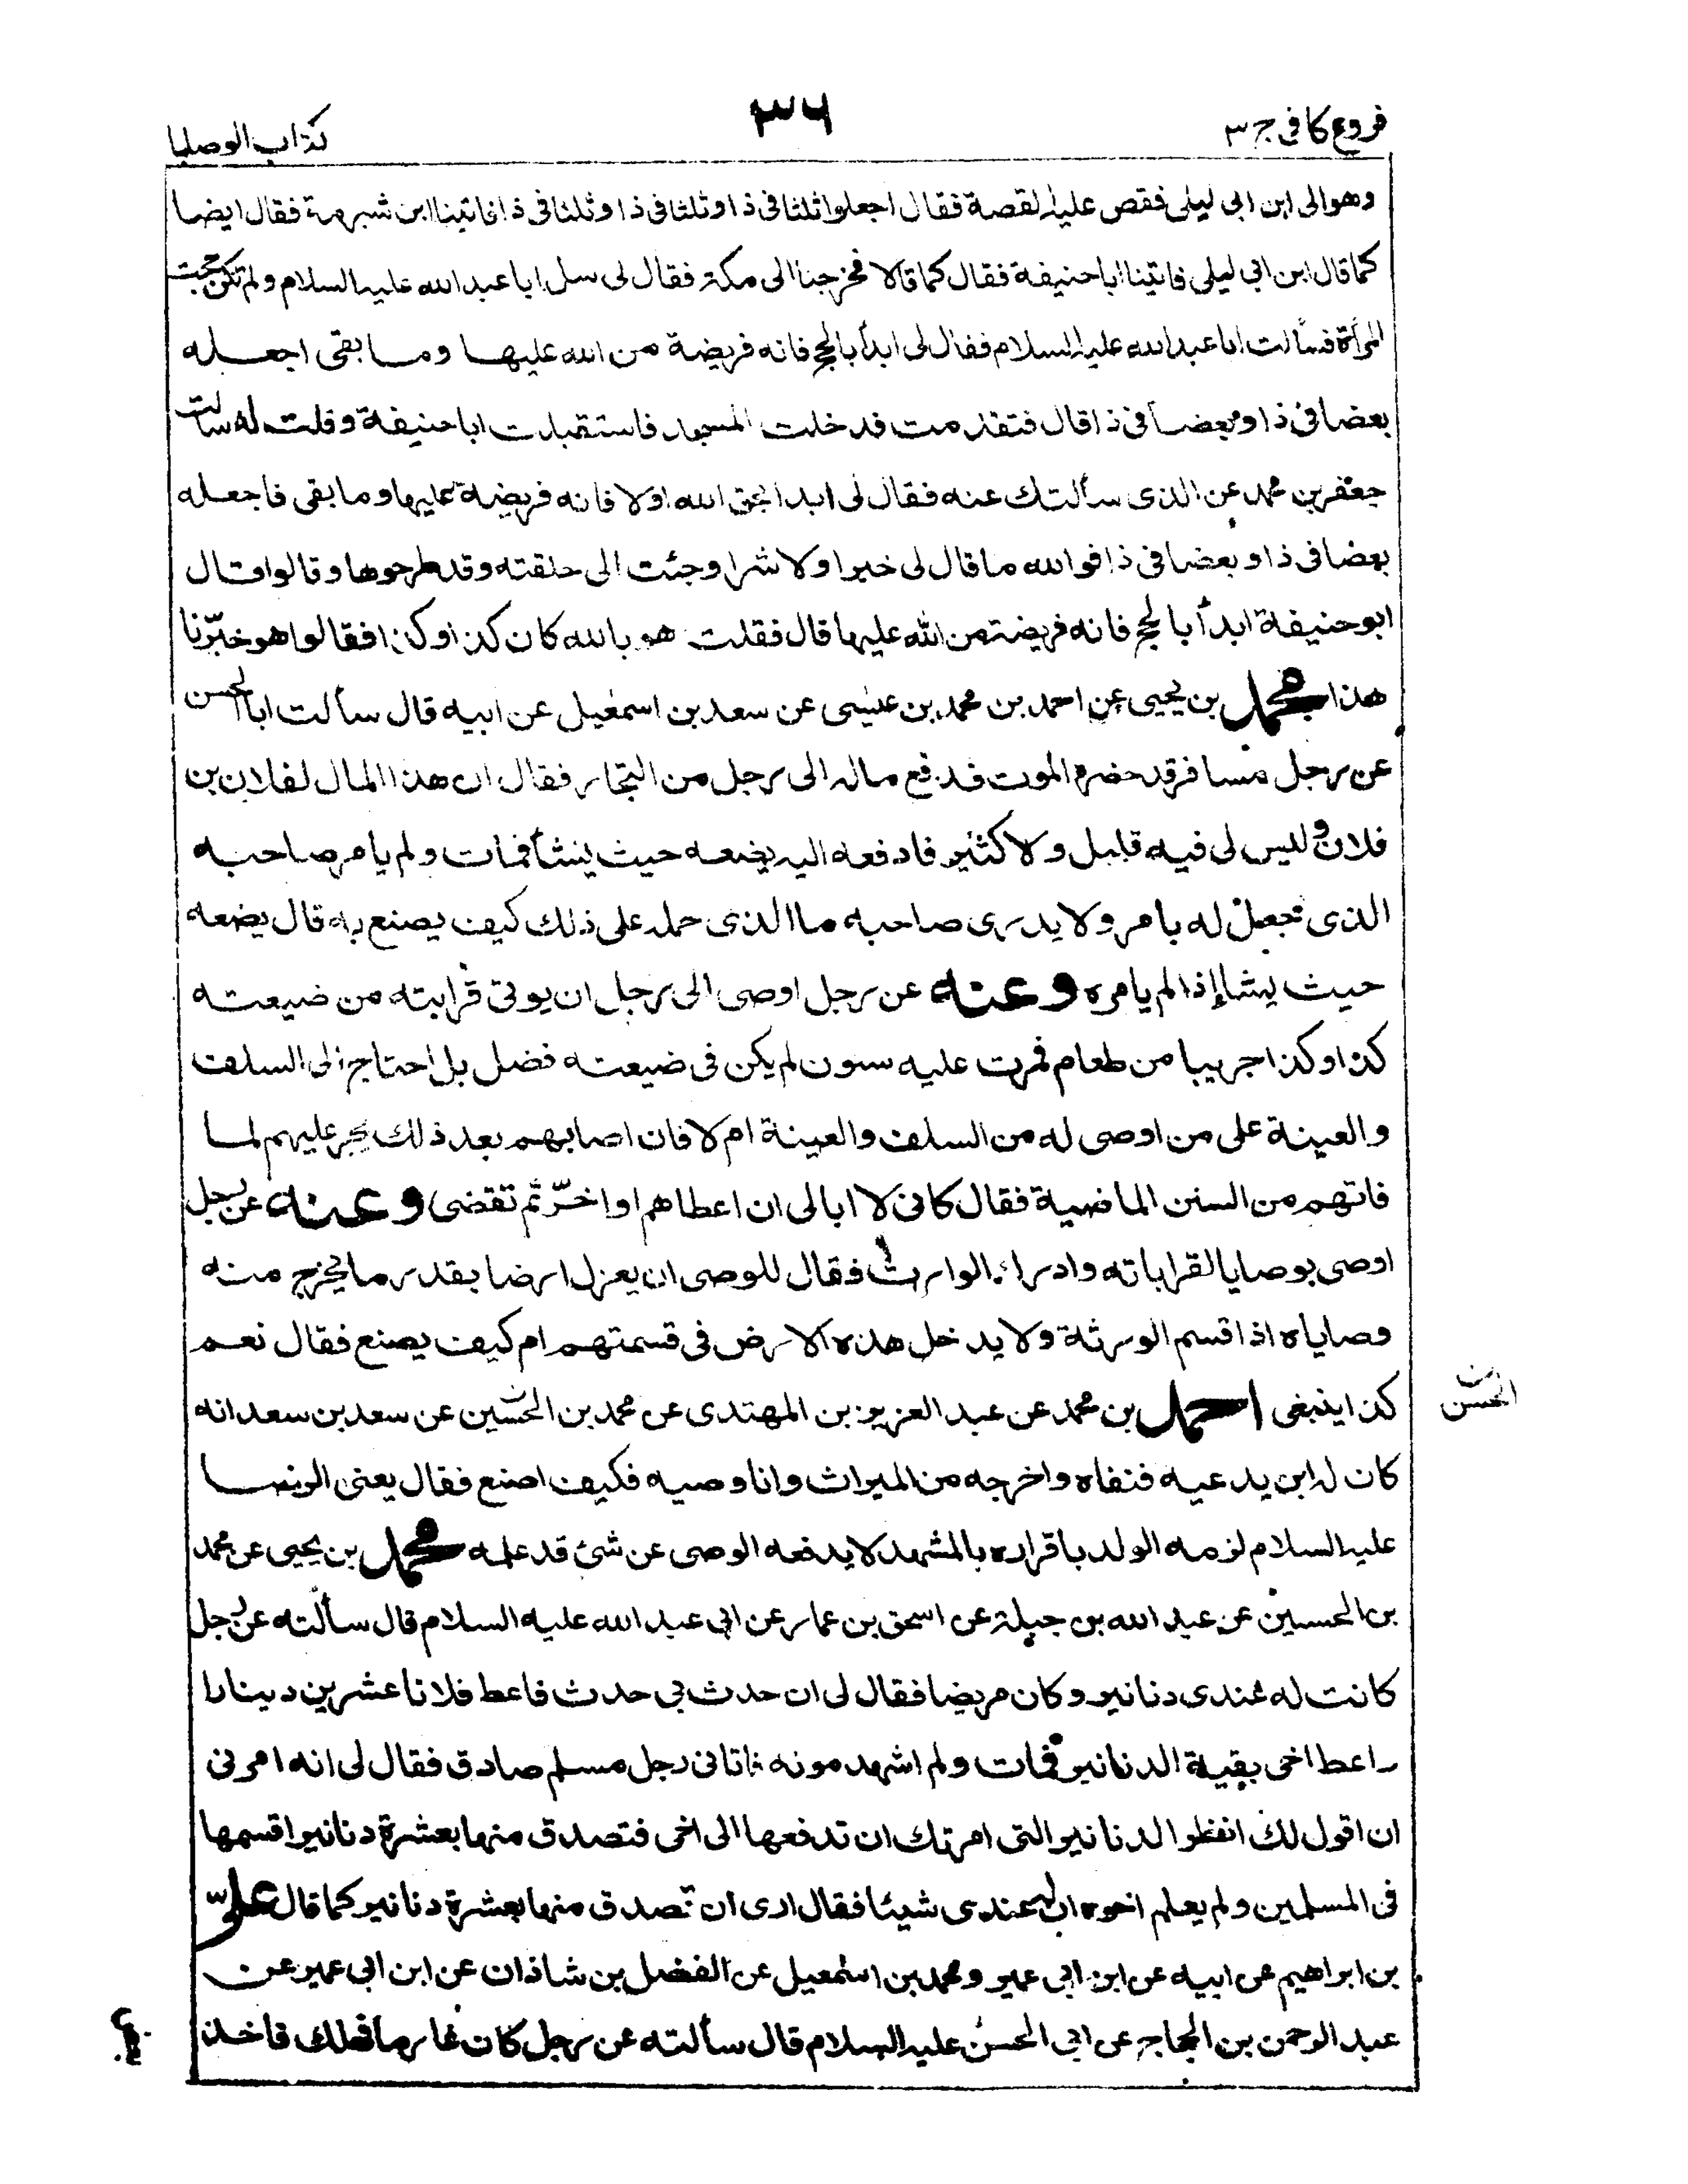 فروع كافى ج ٣
٣٦
كتاب الوصايا
وهوالى ابن ابى ليلى فقص عليه القصة فقال اجعلوا ثلثا فى ذا وثلثا فى ذا وثلثا فى ذا فاتينا ابن شبرمة فقال ايضا
كما قال ابن ابى ليلى فاتينا ابا حنيفة فقال كما قالا فخرجنا الى مكة فقال لى سل ابا عبد الله عليه السلام ولم تكن حجت
المرأة فسألت ابا عبد الله عليه السلام فقال لى ابدأ بالحج فانه فريضة من الله عليها وما بقى اجعله
بعضا فى ذا وبعضا فى ذا قال فتقدمت فدخلت المسجد فاستقبلت ابا حنيفة وقلت له سالت
جعفر بن محمد عن الذى سألتك عنه فقال لى ابدا بحق الله اولا فانه فريضة عليها وما بقى فاجعله
بعضا فى ذا وبعضا فى ذا فوالله ما قال لى خيرا ولا شرا وجئت الى حلقته وقد طرحوها وقالوا قال
ابو حنيفة ابدأ بالحج فانه فريضة من الله عليها قال فقلت هو بالله كان كذا وكذا فقالوا هو خبّرنا
هذا محمد بن يحيى عن احمد بن محمد بن عيسى عن سعد بن اسمعيل عن ابيه قال سألت ابا الحسن
عن رجل مسافر قد حضره الموت فدفع ماله الى رجل من التجار فقال ان هذا المال لفلان بن
فلان وليس لى فيه قليل ولا كثير فادفعه اليه يضعه حيث يشأ فمات ولم يامر صاحبه
الذى جعل له بامر ولا يدرى صاحبه ما الذى حمله على ذلك كيف يصنع به قال يضعه
حيث يشا إذا لم يامره وعنه عن رجل اوصى الى رجل ان يوتى قرابته من ضيعته
كذا وكذا جريبا من طعام فمرت عليه سنون لم يكن فى ضيعته فضل بل احتاج الى السلف
والعينة على من اوصى له من السلف والعينة ام لا فان اصابهم بعد ذلك يجر عليهم لما
فاتهم من السنن الماضية فقال كانى لا ابالى ان اعطاهم او اخّر ثم تقضى وعنه عن رجل
اوصى بوصايا لقراباته وادراء الوارث فقال للوصى ان يعزل ارضا بقدر ما يخرج منه
وصاياه اذا قسم الورثة ولا يدخل هذه الارض فى قسمتهم ام كيف يصنع فقال نعم
كذا ينبغى احمد بن محمد عن عبد العزيز بن المهتدى عن محمد بن الحسين عن سعد بن سعد انه
بن الحسن
كان له ابن يدعيه فنفاه واخرجه من الميراث وانا وصيه فكيف اصنع فقال يعنى الرضا
عليه السلام لزمه الولد باقراره بالمشهد لا يدفعه الوصى عن شئ قد علمه محمد بن يحيى عن محمد
بن الحسين عن عبد الله بن جبلة عن اسحق بن عمار عن ابى عبد الله عليه السلام قال سألته عن رجل
كانت له عندى دنانير وكان مريضا فقال لى ان حدث بى حدث فاعط فلانا عشرين دينارا
واعط اخى بقية الدنانير فمات ولم اشهد موته فاتانى رجل مسلم صادق فقال لى انه امرنى
ان اقول لك انظر الدنانير التى امرتك ان تدفعها الى اخى فتصدق منها بعشرة دنانير اقسمها
فى المسلمين ولم يعلم اخوه ان له عندى شيئا فقال ارى ان تصدق منها بعشرة دنانير كما قال علىّ
بن ابراهيم عن ابيه عن ابن ابى عمير ومحمد بن اسمعيل عن الفضل بن شاذان عن ابن ابى عمير عن
عبد الرحمن بن الحجاج عن ابى الحسن عليه السلام قال سألته عن رجل كان غارما فهلك فاخذ